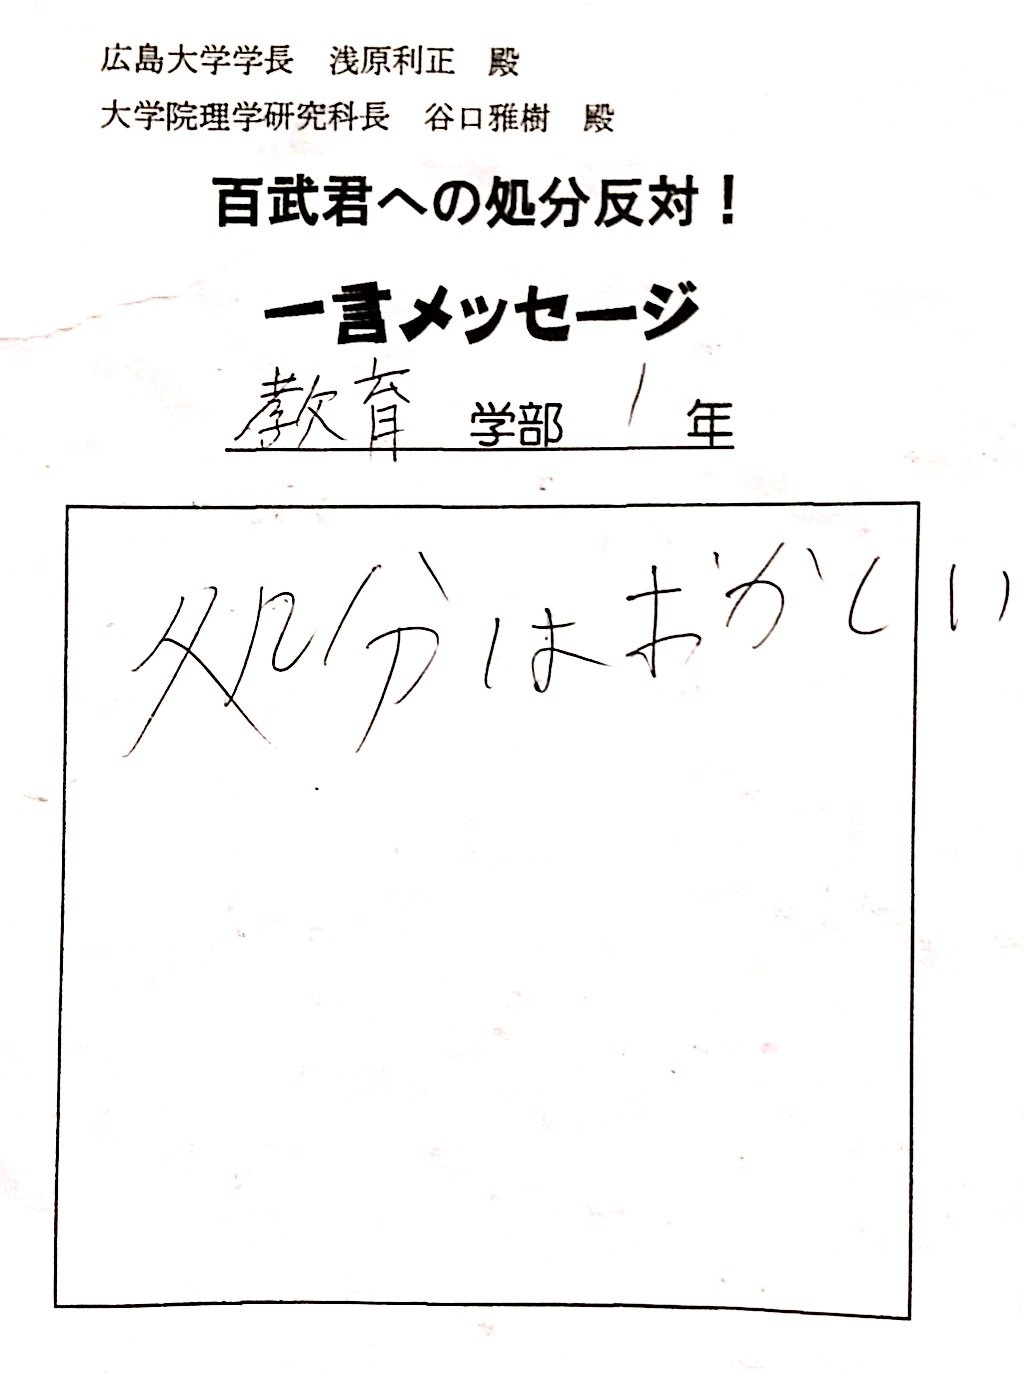 広島大学学長　浅原利正　殿
大学院理学研究科長　谷口雅樹　殿
百武君への処分反対！
一言メッセージ
教育 学部 1 年
処分はおかしい